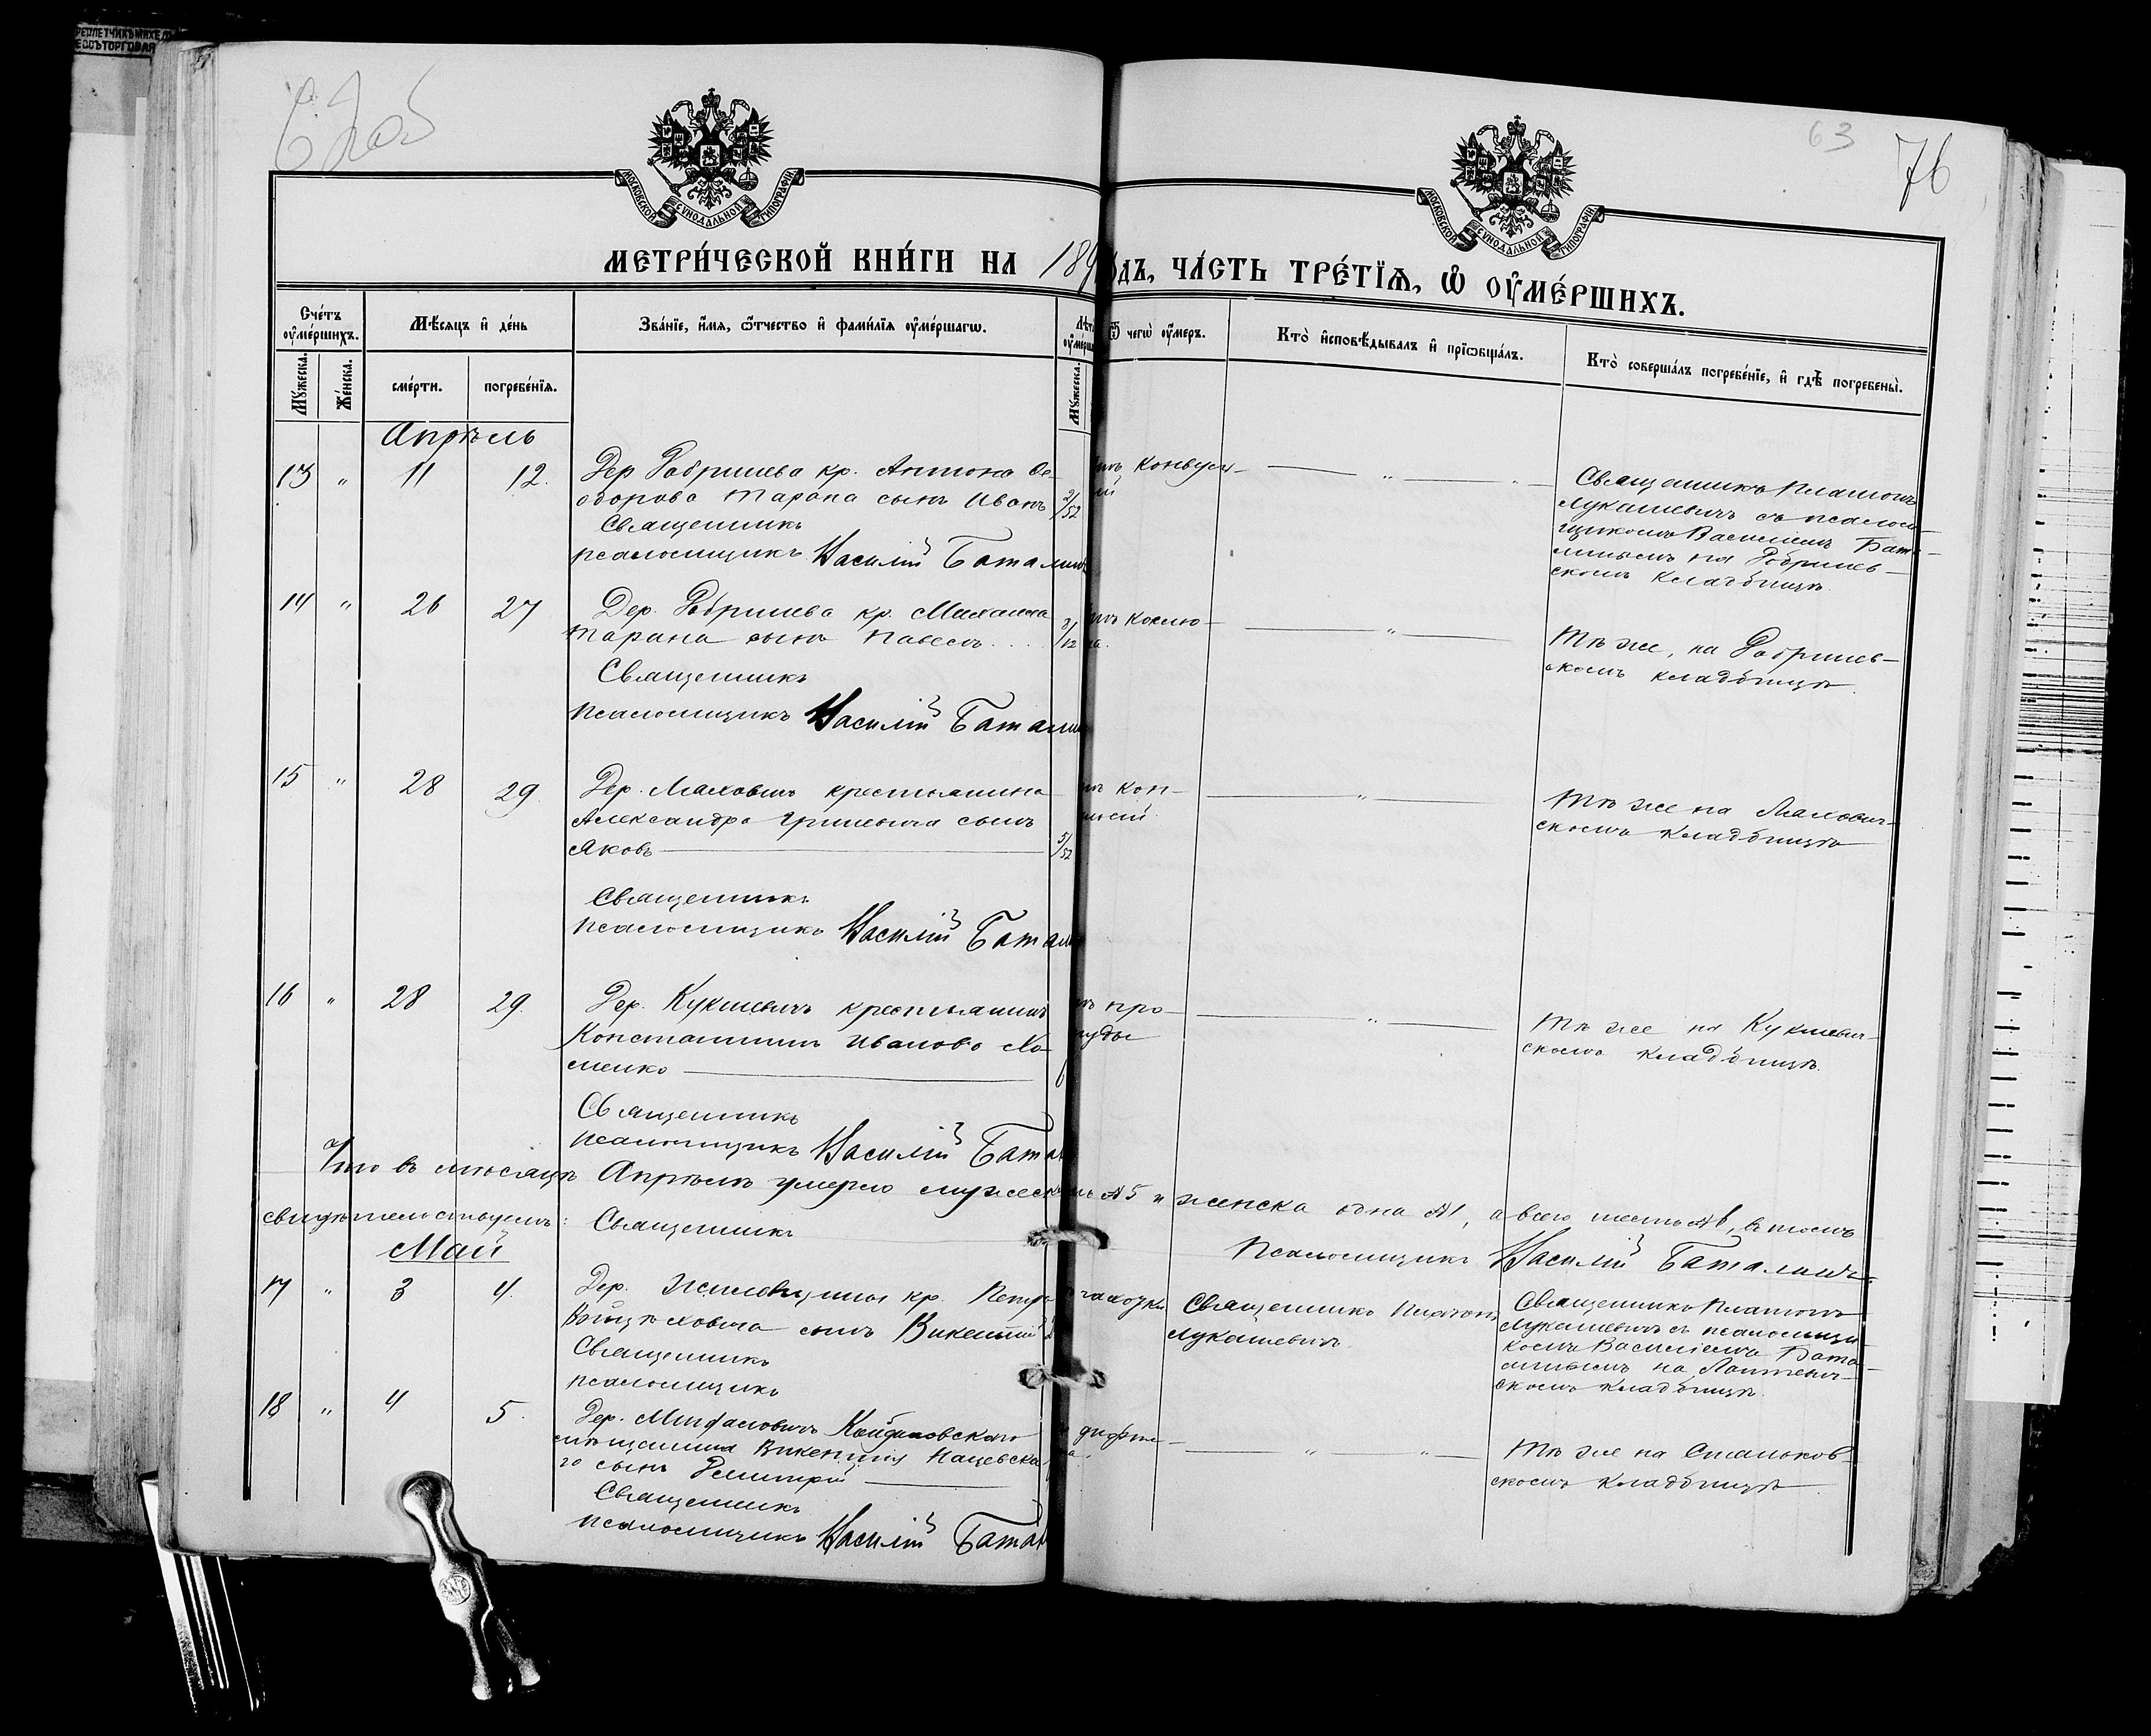 63
76
МОСКОВСКОЙ СѴНОДАЛЬНОЙ ТИПОГРАФІИ
МОСКОВСКОЙ СѴНОДАЛЬНОЙ ТИПОГРАФІИ
МЕТРИ́ЧЕСКОЙ КНИ́ГИ НА 189
ДЪ, ЧА́СТЬ ТРЕ́ТЇѦ, Ѽ ОУ҆МЕ́РШИХЪ.
Сче́тъ оу҆ме́ршихъ.
Мꙋ́жеска.
Же́нска.
Мѣ́сяцъ и҆ де́нь
сме́рти.
погребе́нїя.
Зва́нїе, и҆́мя, ѻ҆́тчество и҆ фами́лїя оу҆ме́ршагѡ.
Мꙋ́жеска.
Ѿ чегѡ̀ оу҆́меръ.
Кто̀ и҆сповѣ́дывалъ и҆ прїѡбща́лъ.
Кто̀ соверша́лъ погребе́нїе, и҆ гдѣ̀ погребены̀.
Апрѣль
13 " 11 12.
Дер. Добринева кр. Антона Ѳе-
одорова Тарана сынъ Иванъ 2/52
Священникъ
псаломщикъ Василій Баталинъ
конвуль-
Священникъ Платонъ
Лукашевичъ съ псалом-
щикомъ Василіемъ Бата-
линымъ на Добринев-
скомъ кладбищѣ.
14 " 26 27
Дер. Добринева кр. Михаила
Тарана сынъ Павелъ 3/12
Священникъ
Псаломщикъ Василій Баталин
коклю-
Тѣ же, на Добринев-
скомъ кладбищѣ.
15 " 28 29.
Дер. Малович крестьянина
Александра Гриневича сынъ
Яковъ 5/52
Священникъ
Псаломщикъ Василій Батали
Тѣ же на Малович-
скомъ кладбищѣ
16 " 28 29.
Дер. Кукшевичъ крестьянинъ
Константинъ Иванова Хо-
менко
Священникъ
Псаломщикъ Василій Бата
про-
Тѣ же на Кукшевич-
скомъ кладбищѣ.
Что въ мѣсяцѣ Апрѣлѣ умерло мужеска № 5 и женска одна № 1, а всего шесть № 6, въ томъ
свидѣтельствуемъ: Священникъ
Псаломщикъ Василій Баталинъ
Май
17 " 3 4.
Дер. кр. Петра
Войцѣховича сынъ Викентій
Священникъ
Псаломщикъ
чахотки
Священникъ Платонъ
Лукашевичъ.
Священникъ Платонъ
Лукашевичъ съ псаломщи-
комъ Василіемъ Бата-
линымъ на
скомъ кладбищѣ.
18 " 4 5.
Дер. Минфаловичъ Койдановскаго
мѣщанина Викентія Нацевска-
го сынъ Димитрій
Священникъ
Псаломщикъ Василій Бата
дифте-
Тѣ же на Станьков-
скомъ кладбищѣ.